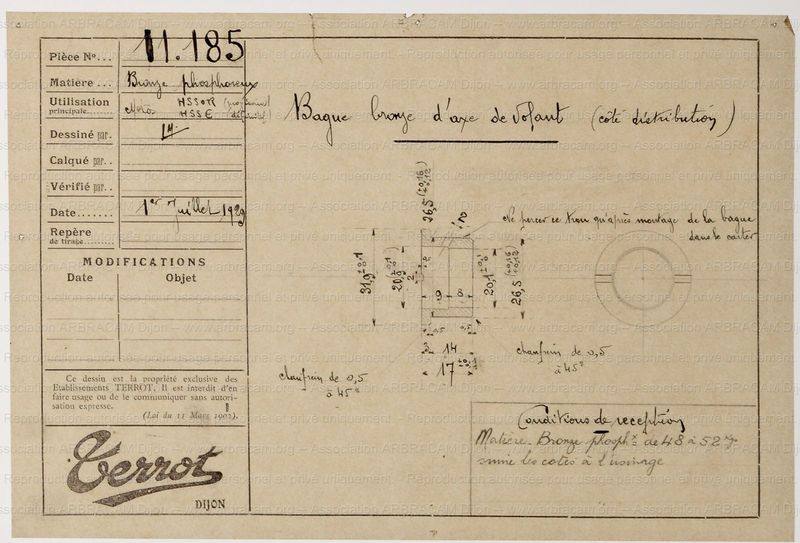 Pièce N°... 11.185
Matière ... Bronze phosphoreux
Utilisation
principale
Moto HSSOR
HSSE
Dessiné par..
Calqué par..
Vérifié par..
Date....... 1er Juillet 1929
Repère
de tirage
MODIFICATIONS
Date Objet
Ce dessin est la propriété exclusive des
Etablissements TERROT. Il est interdit d'en
faire usage ou de le communiquer sans autori-
sation expresse.
(Loi du 11 Mars 1902).
Terrot
DIJON
Bague bronze d'axe de volant (côté distribution)
Ne percer ce trou qu'après montage de la bague
dans le carter
26,5
31,9
20,1
26,5
9 8
3 14
17
0,5
chanfrein de 0,5
à 45°
chanfrein de 0,5
à 45°
Conditions de réception
Matière. Bronze phosph de 48 à 52 kg
suivre les cotes à l'usinage
Association ARBRACAM Dijon – www.arbracam.org – Association ARBRACAM Dijon
Reproduction autorisée pour usage personnel et privé uniquement.